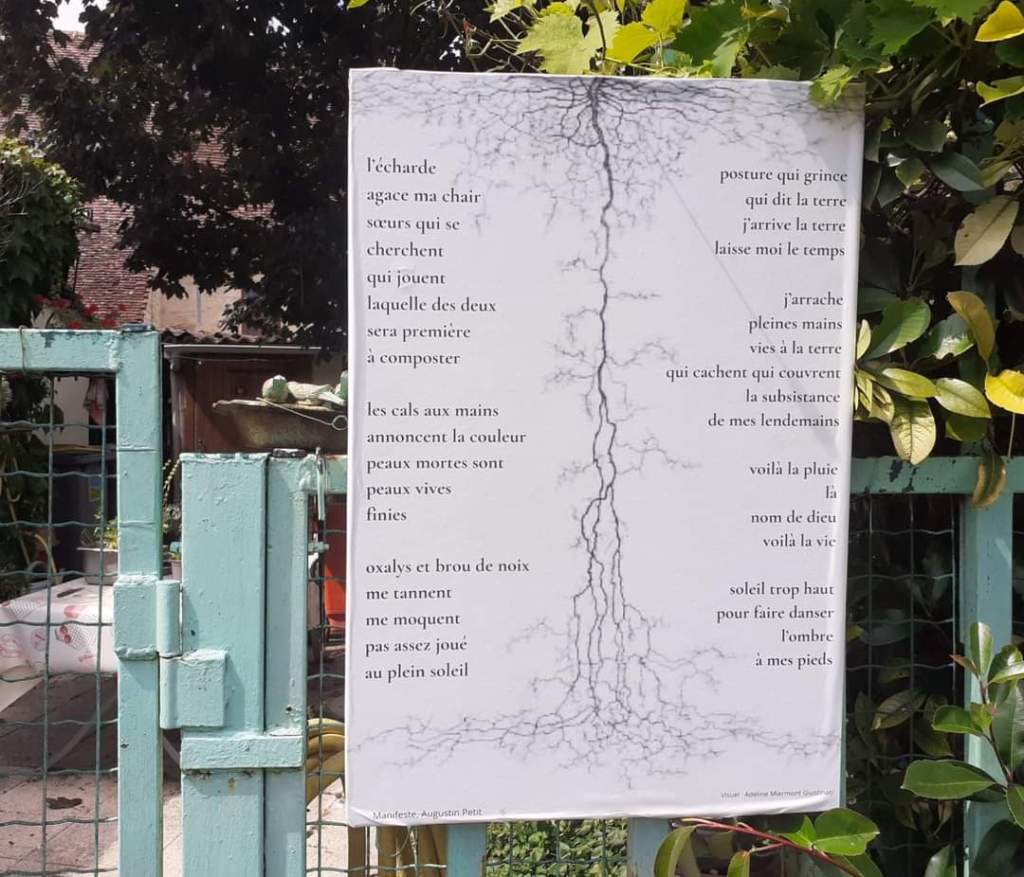 l'écharde
agace ma chair
sœurs qui se
cherchent
qui jouent
laquelle des deux
sera première
à composter
les cals aux mains
annoncent la couleur
peaux mortes sont
peaux vives
finies
oxalys et brou de noix
me tannent
me moquent
pas assez joué
au plein soleil
posture qui grince
qui dit la terre
j'arrive la terre
laisse moi le temps
j'arrache
pleines mains
vies à la terre
qui cachent qui couvrent
la subsistance
de mes lendemains
voilà la pluie
là
nom de dieu
voilà la vie
soleil trop haut
pour faire danser
l'ombre
à mes pieds
Visuel : Adeline Miermont
Manifeste, Augustin Petit